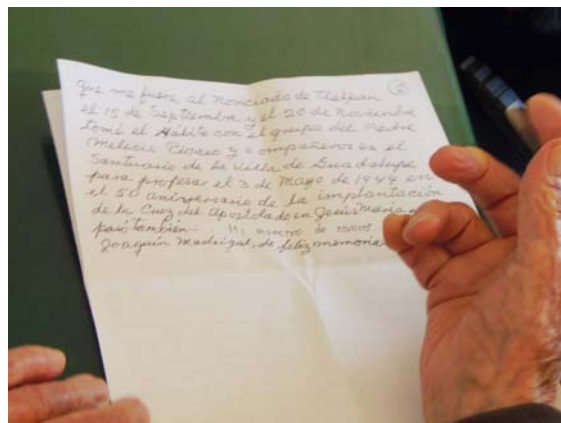 que me fuera al Noviciado de Tlalpan
el 15 de Septiembre y el 20 de Noviembre
tomé el Hábito con el grupo del Padre
Melecio Picazo y compañeros en el
Santuario de la Villa de Guadalupe
para profesar el 3 de Mayo de 1944 en
el 50 aniversario de la implantación
de la Cruz del Apostolado en Jesús María
pasó también Mi maestro de novicios
Joaquín Madrigal, de feliz memoria